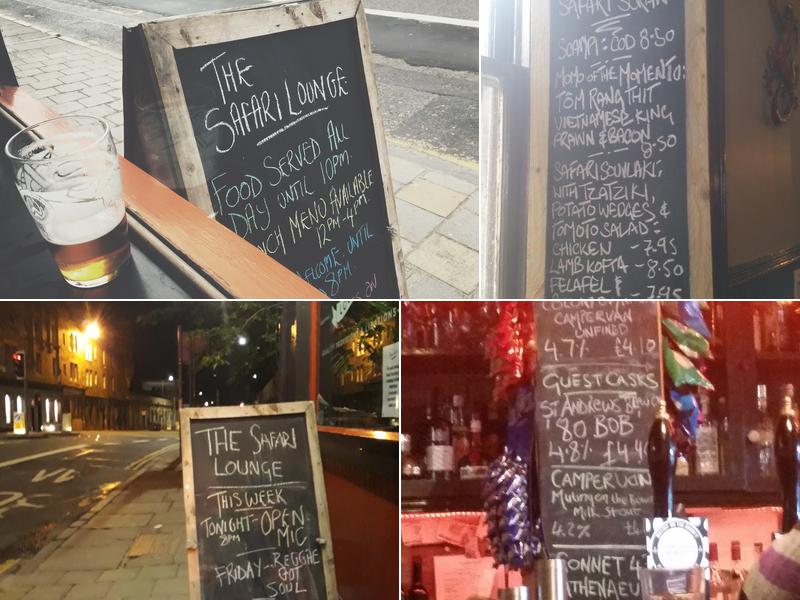 THE
SAFARI LOUNGE
FOOD SERVED ALL
DAY UNTIL 10PM.
MENU AVAILABLE
12PM-4PM.
UNTIL
8PM.
ON
SAFARI
SOAPA: COD 8.50
MOMO OF THE MOMENT
TOM RANG THIT
VIETNAMESE KING
PRAWN & BACON
8.50
SAFARI SOUVLAKI,
WITH TZATZIKI,
POTATO WEDGES &
TOMOTO SALAD:
CHICKEN - 7.95
LAMB KOFTA - 8.50
FELAFEL &
7.95
THE SAFARI
LOUNGE
THIS WEEK
TONIGHT-OPEN
8PM MIC
FRIDAY-REGGAE
GOT
SOUL
CAMPERVAN
UNFINED
4.7% £4.10
GUEST CASKS
ST ANDREWS BREW CO
80 BOB
4.8% £4.4
CAMPERVAN
Mutiny on the
Milk Stout
4.2%